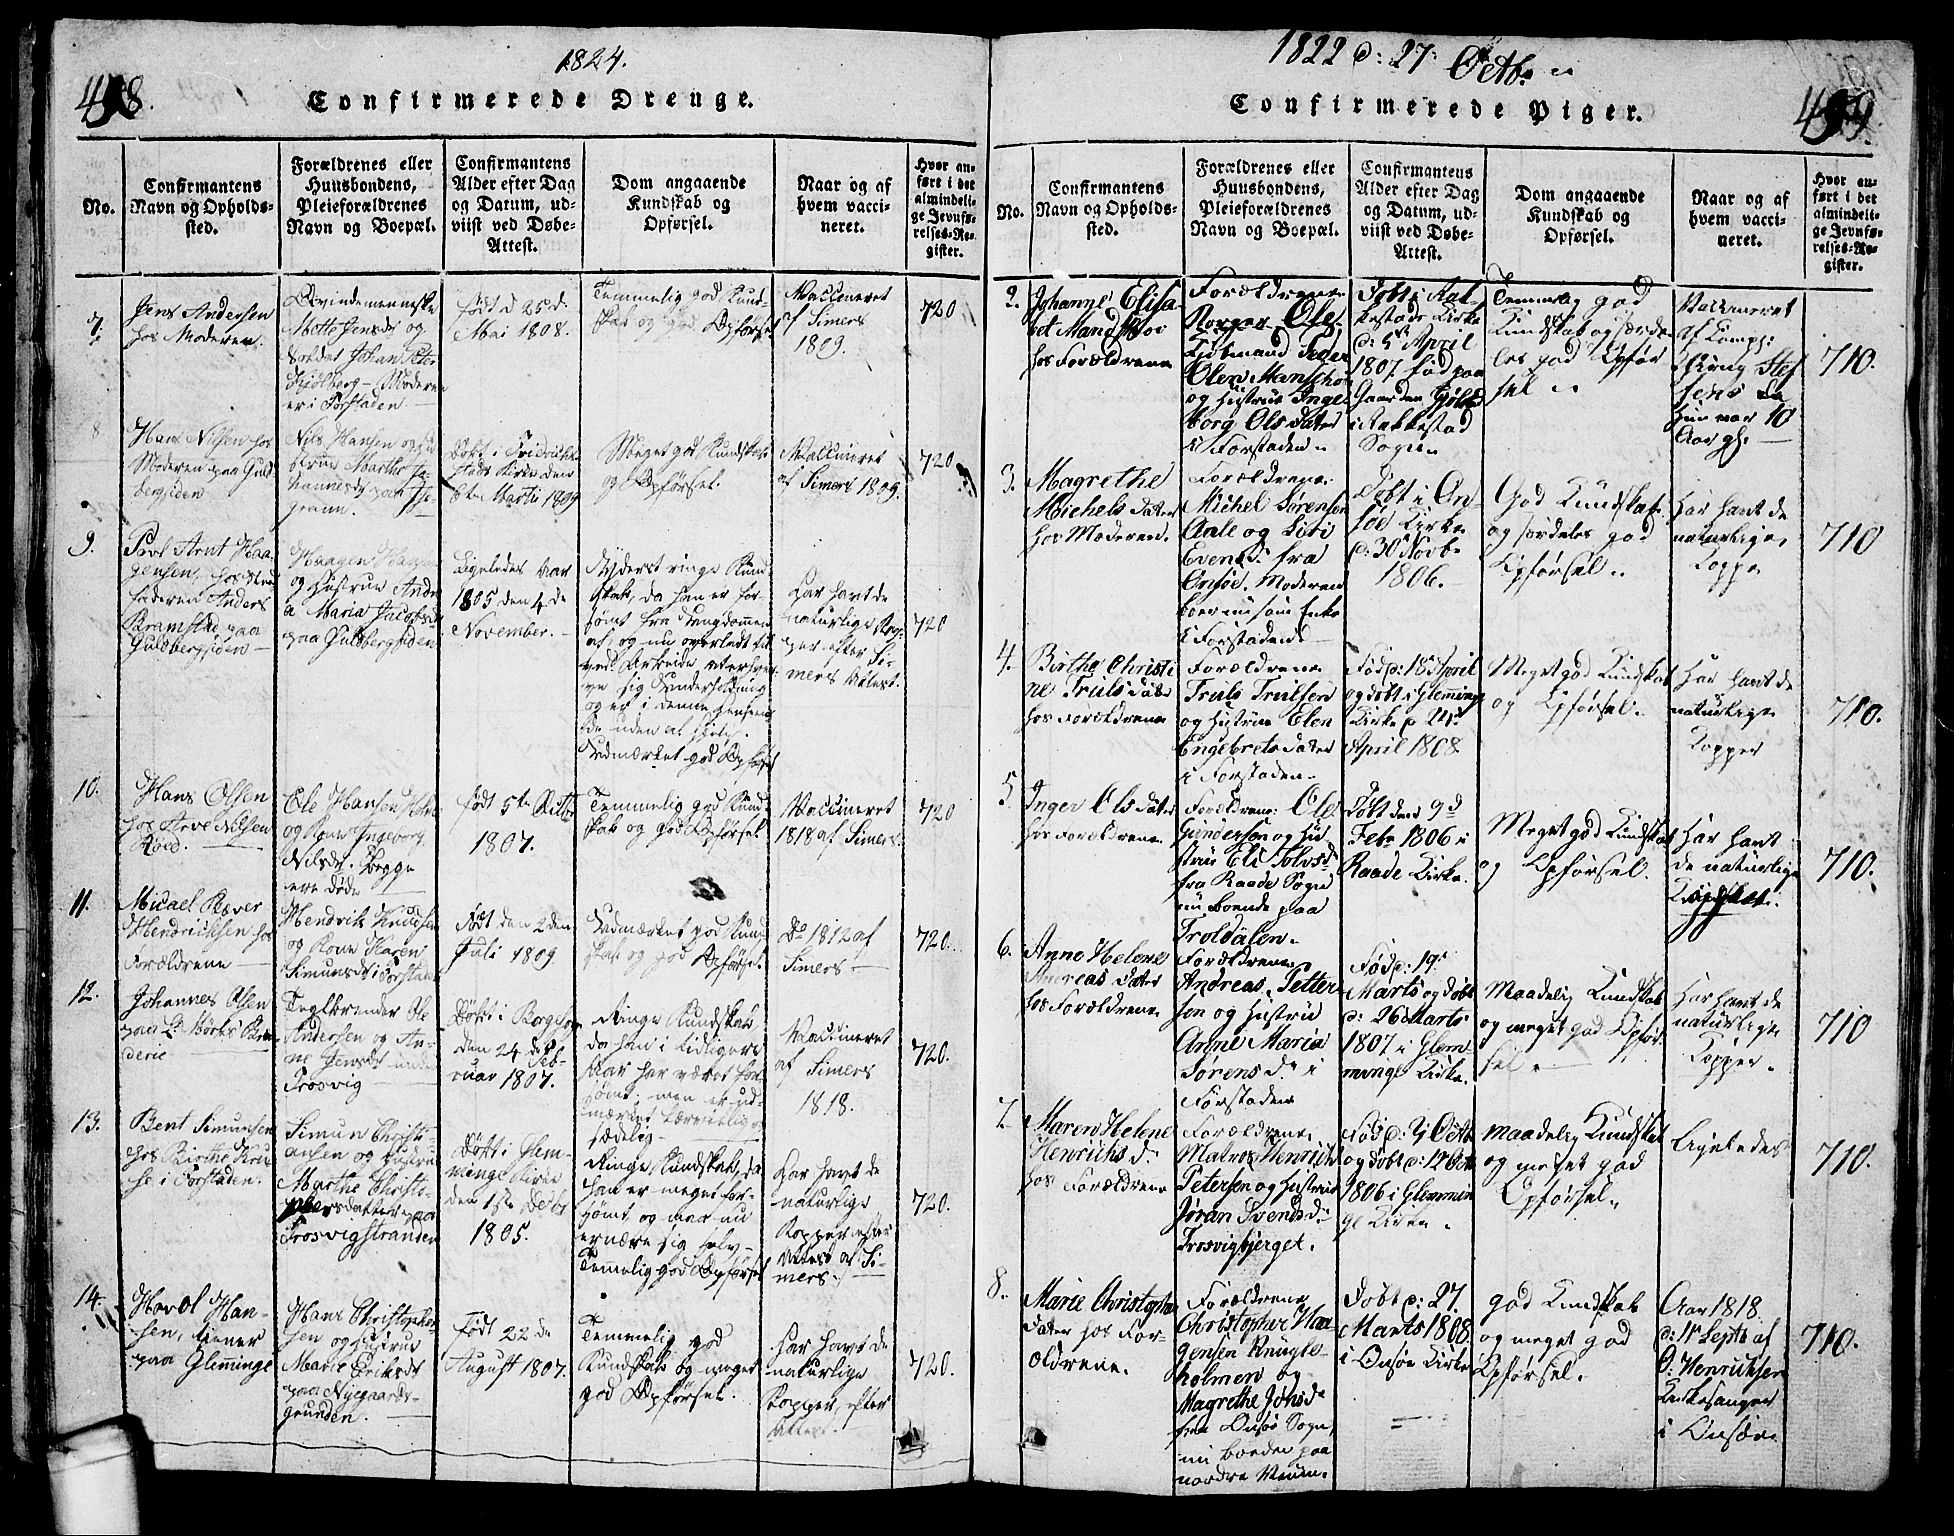 1824.
498.
Confirmerede Drenge.
No.
Confirmantens
Navn og Opholds-
sted.
Forældrenes eller
Huusbondens,
Pleieforældrenes
Navn og Boepæl.
Confirmantens
Alder efter Dag
og Datum, ud-
viist ved Døbe-
Attest.
Dom angaaende
Kundskab og
Opførsel.
Naar og af
hvem vacci-
neret.
Hvor an-
ført i det
almindeli-
ge Jevnfø-
relses-Re-
gister.
7.
Jens Andersen
hos Moderen.
Qvindemenneske
Mette Jensdr og
Soldat Johan Peter
Moderen
er i Forstaden
født d 25 d.
Mai 1808.
Temmelig god Kund-
skab og god Opførsel
Vaccineret
af Simers
1809.
720
8
Hans Nilsen hos
Moderen paa Guld
bergsiden
Nils Hansen og Hu
strue Marthe Jo
hannesdr paa
grunn.
Døbt i Fridrich
stads Kirke den
Martii 1809
Meget god Kundskab
og Opførsel.
Vaccineret
af Simers 1809.
720
9.
Povl Arnt Haa
gensen, hos Sted
faderen Anders
Bramstad paa
Guldbergsiden
Haagen
og Hustrue Andre
a Maria Jacobsdr
paa Guldbergsiden
Ligeledes Aar
1805 den 4 de
November.
Yderst ringe Kund
skab, da han er for-
sømt fra Ungdommen
af og nu
Arbeide at
sig Underholdning
og er i denne Henseen
de uden al
Udmærket god Opførsel
Har havt de
naturlige Kop-
per efter Si-
mers Attest.
720
10.
Hans Olsen
hos Arve Nilsen
Ole Hansen
og Kone Ingeborg
Nilsdr. Begge
ere døde
født 5te
1807.
Temmelig god Kund
skab og god Opførsel
Vaccineret
1818 af Simers.
720
11.
Micael Bever
Hendrichsen hos
Forældrene
Hendrik Knudsen
og Kone Karen
Simunsdr i Forstaden
Født den 2 den
Juli 1809
Udmærket god Kund
skab og god Opførsel.
Do 1812 af
Simers
720.
12.
Johannes Olsen
paa
Teglbrender Ole
Andersen og An-
ne Jensdr under
Trosvig
Døbt i Borge
den 24 de Feb-
ruar 1807.
Ringe Kundskab
da han i tidligere
Aar har været for
sømt, men er ud-
mærket lærvillig og
sædelig
Vaccineret
af Simers
1818.
720.
13.
Bent Simunsen
hos Birthe
i Forstaden.
Simun Christi-
ansen og Hustrue
Marthe Christo-
phersdatter paa
Trosvigstranden
Døbt i Glem-
minge Kirke
den
1805.
Ringe Kundskab, da
han er meget for-
sømt og maa nu
ernære sig selv
Temmelig god Opførsel
Har havt de
naturlige
Kopper efter
Attest af Si-
mers.
720.
14.
Hovel Han-
sen, tiener
paa Gleminge
Hans Christopher
sen og Hustrue
Marie Eriksdr
paa Nygaards-
grunden.
Født 22 de
August 1807.
Temmelig god
Kundskab og meget
god Opførsel.
Har havt de
naturlige
Kopper, efter
Attest.
720.
1822 d: 27. Octb.
499.
Confirmerede Piger.
No.
Confirmantens
Navn og Opholds-
sted.
Forældrenes eller
Huusbondens,
Pleieforældrenes
Navn og Boepæl.
Confirmantens
Alder efter Dag
og Datum, ud-
viist ved Døbe-
Attest.
Dom angaaende
Kundskab og
Opførsel.
Naar og af
hvem vacci-
neret.
Hvor an-
ført i det
almindeli-
ge Jevnfø-
relses-Re-
gister.
2.
Johanne Elisa-
bet
hos Forældrene
Forældrene
Kjøbmand Peder
Olen
og Hustrue Inge-
borg Ols Dater
i Forstaden
Døbt i Rak-
kestads Kirke
April
1807. fød paa
Gaarden
i Rakkestad
Sogn
Temmelig god
Kundskab og særde
les god Opfør
sel
Vaccineret
af
Stef
fens da
hun var 10
Aar gl.
710.
3.
Magrethe
Michels Dater
hos Moderen.
Forældrene
Michel Sørensen
Aale og Siri
Evensd. fra
Onsøe. Moderen
boer nu som Enke
i Forstaden
Døbt i On-
søe Kirke
d: 30 Novb
1806.
God Kundskab
og særdeles god
Opførsel
Har havt de
naturlige
Kopper
710
4.
Birthe Christi
ne Truls Dater
hos Forældrene
Forældrene
Truls Trulsen
og Hustrue Elen
Engebrets Dater
i Forstaden
Fød d: 18 April
og døbt i Glemming
Kirke d 24
April 1808
Meget god Kundskab
og Opførsel.
Har havt de
naturlige
Kopper
710.
5
Inger Ols Dater
hos Forældrene
Forældrene: Ole
Gundersen og Hu
strue Eli
fra Raade Sogn
nu boende paa
Troldalen.
Døbt den 9 d
Febr 1806 i
Raade Kirke.
Meget god Kundskab
og Opførsel.
Har havt
de naturlige
710.
6.
Anne Helene
Andreas Dater
hos Forældrene
Forældrene
Andreas Petter-
sen og Hustrue
Anne Maria
Sørens D. i
Forstaden
Fød d: 19.
Marts og døbt
d: 26 Marts
1807 i Glem
minge Kirke.
Maadelig Kundskab
og meget god Opfør
sel
Har havt de
naturlige
Kopper.
710
7.
Maren Helene
Henrichs D.
hos Forældrene
Forældrene
Matros Henrich
Petersen og Hustrue
Jøran Svends D
Trosvigbjerget.
Fød d: Octb
og døbt d: 12 Oct
1806 i Glemmin
ge Kirke.
maadelig Kundskab
og meget god
Opførsel.
Ligeledes
710.
8.
Marie Christophe
Dater hos For-
ældrene.
Forældrene
Christopher Haa
gensen Knügle-
holmen og
Magrethe Johs D
fra Onsøe Sogn,
nu boende paa
nordre
Døbt d: 27
Marts 1808
i Onsøe Kirke
god Kundskab
og meget god
Opførsel.
Aar 1818.
d: 11 Septb af
O: Henrichsen
Kirkesanger
i Onsøe.
710.